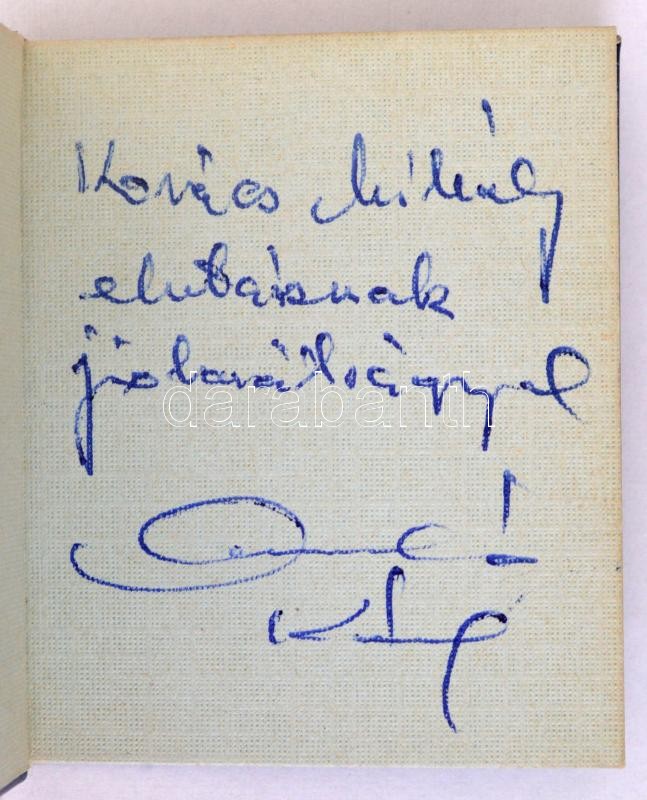 Kovács Mihály
elvtársnak
jóbarátsággal
darabanth